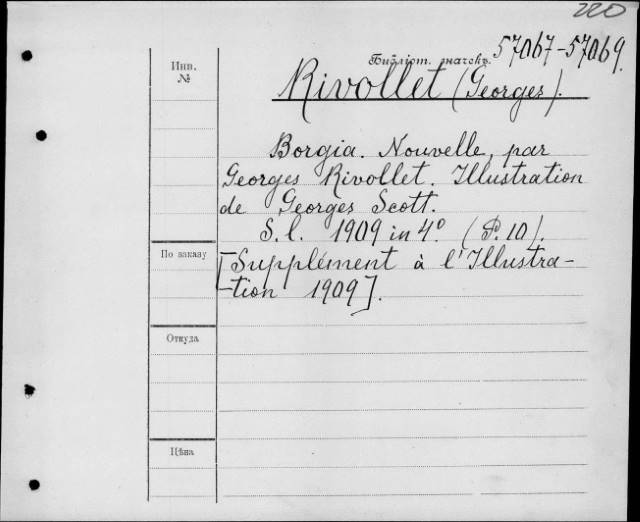 220
57067-57069.
Библіот. значекъ.
Инв.
№
Rivollet (Georges).
Borgia. Nouvelle, par
Georges Rivollet. Illustration
de Georges Scott.
S. l. 1909 in 4º (P. 10).
По заказу
[Supplément à l'Illustra-
tion 1909].
Откуда
Цѣна